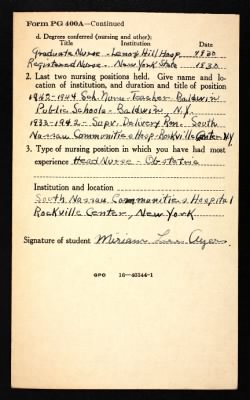 Form PG 400A—Continued
d. Degrees conferred (nursing and other):
Title Institution Date
Graduate Nurse - Lenox Hill Hosp. 1930
Registered Nurse - New York State 1930
2. Last two nursing positions held. Give name and lo-
cation of institution, and duration and title of position
1942-1944 Sch. Nurse-Teacher Baldwin
Public Schools - Baldwin, N.Y.
1933-1942 - Supr. Delivery Rm. South
Nassau Communities Hosp. Rockville Center N.Y.
3. Type of nursing position in which you have had most
experience Head Nurse - Obstetric
Institution and location
South Nassau Communities Hospital
Rockville Center, New York
Signature of student Miriam Lee Ayers
GPO 16—40344-1